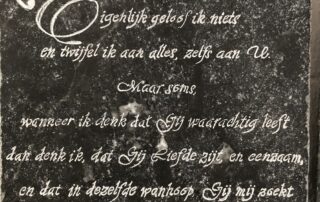 Eigenlijk geloof ik niets
en twijfel ik aan alles, zelfs aan U.
Maar soms,
wanneer ik denk dat Gij waarachtig leeft
dan denk ik, dat Gij Liefde zijt, en eenzaam,
en dat in dezelfde wanhoop, Gij mij zoekt